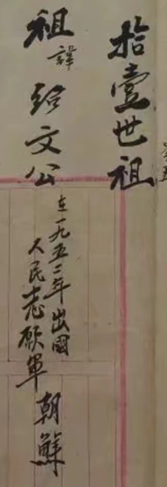 拾壹世祖
祖諱紹文公
在一九五二年出國
人民志願軍朝鮮